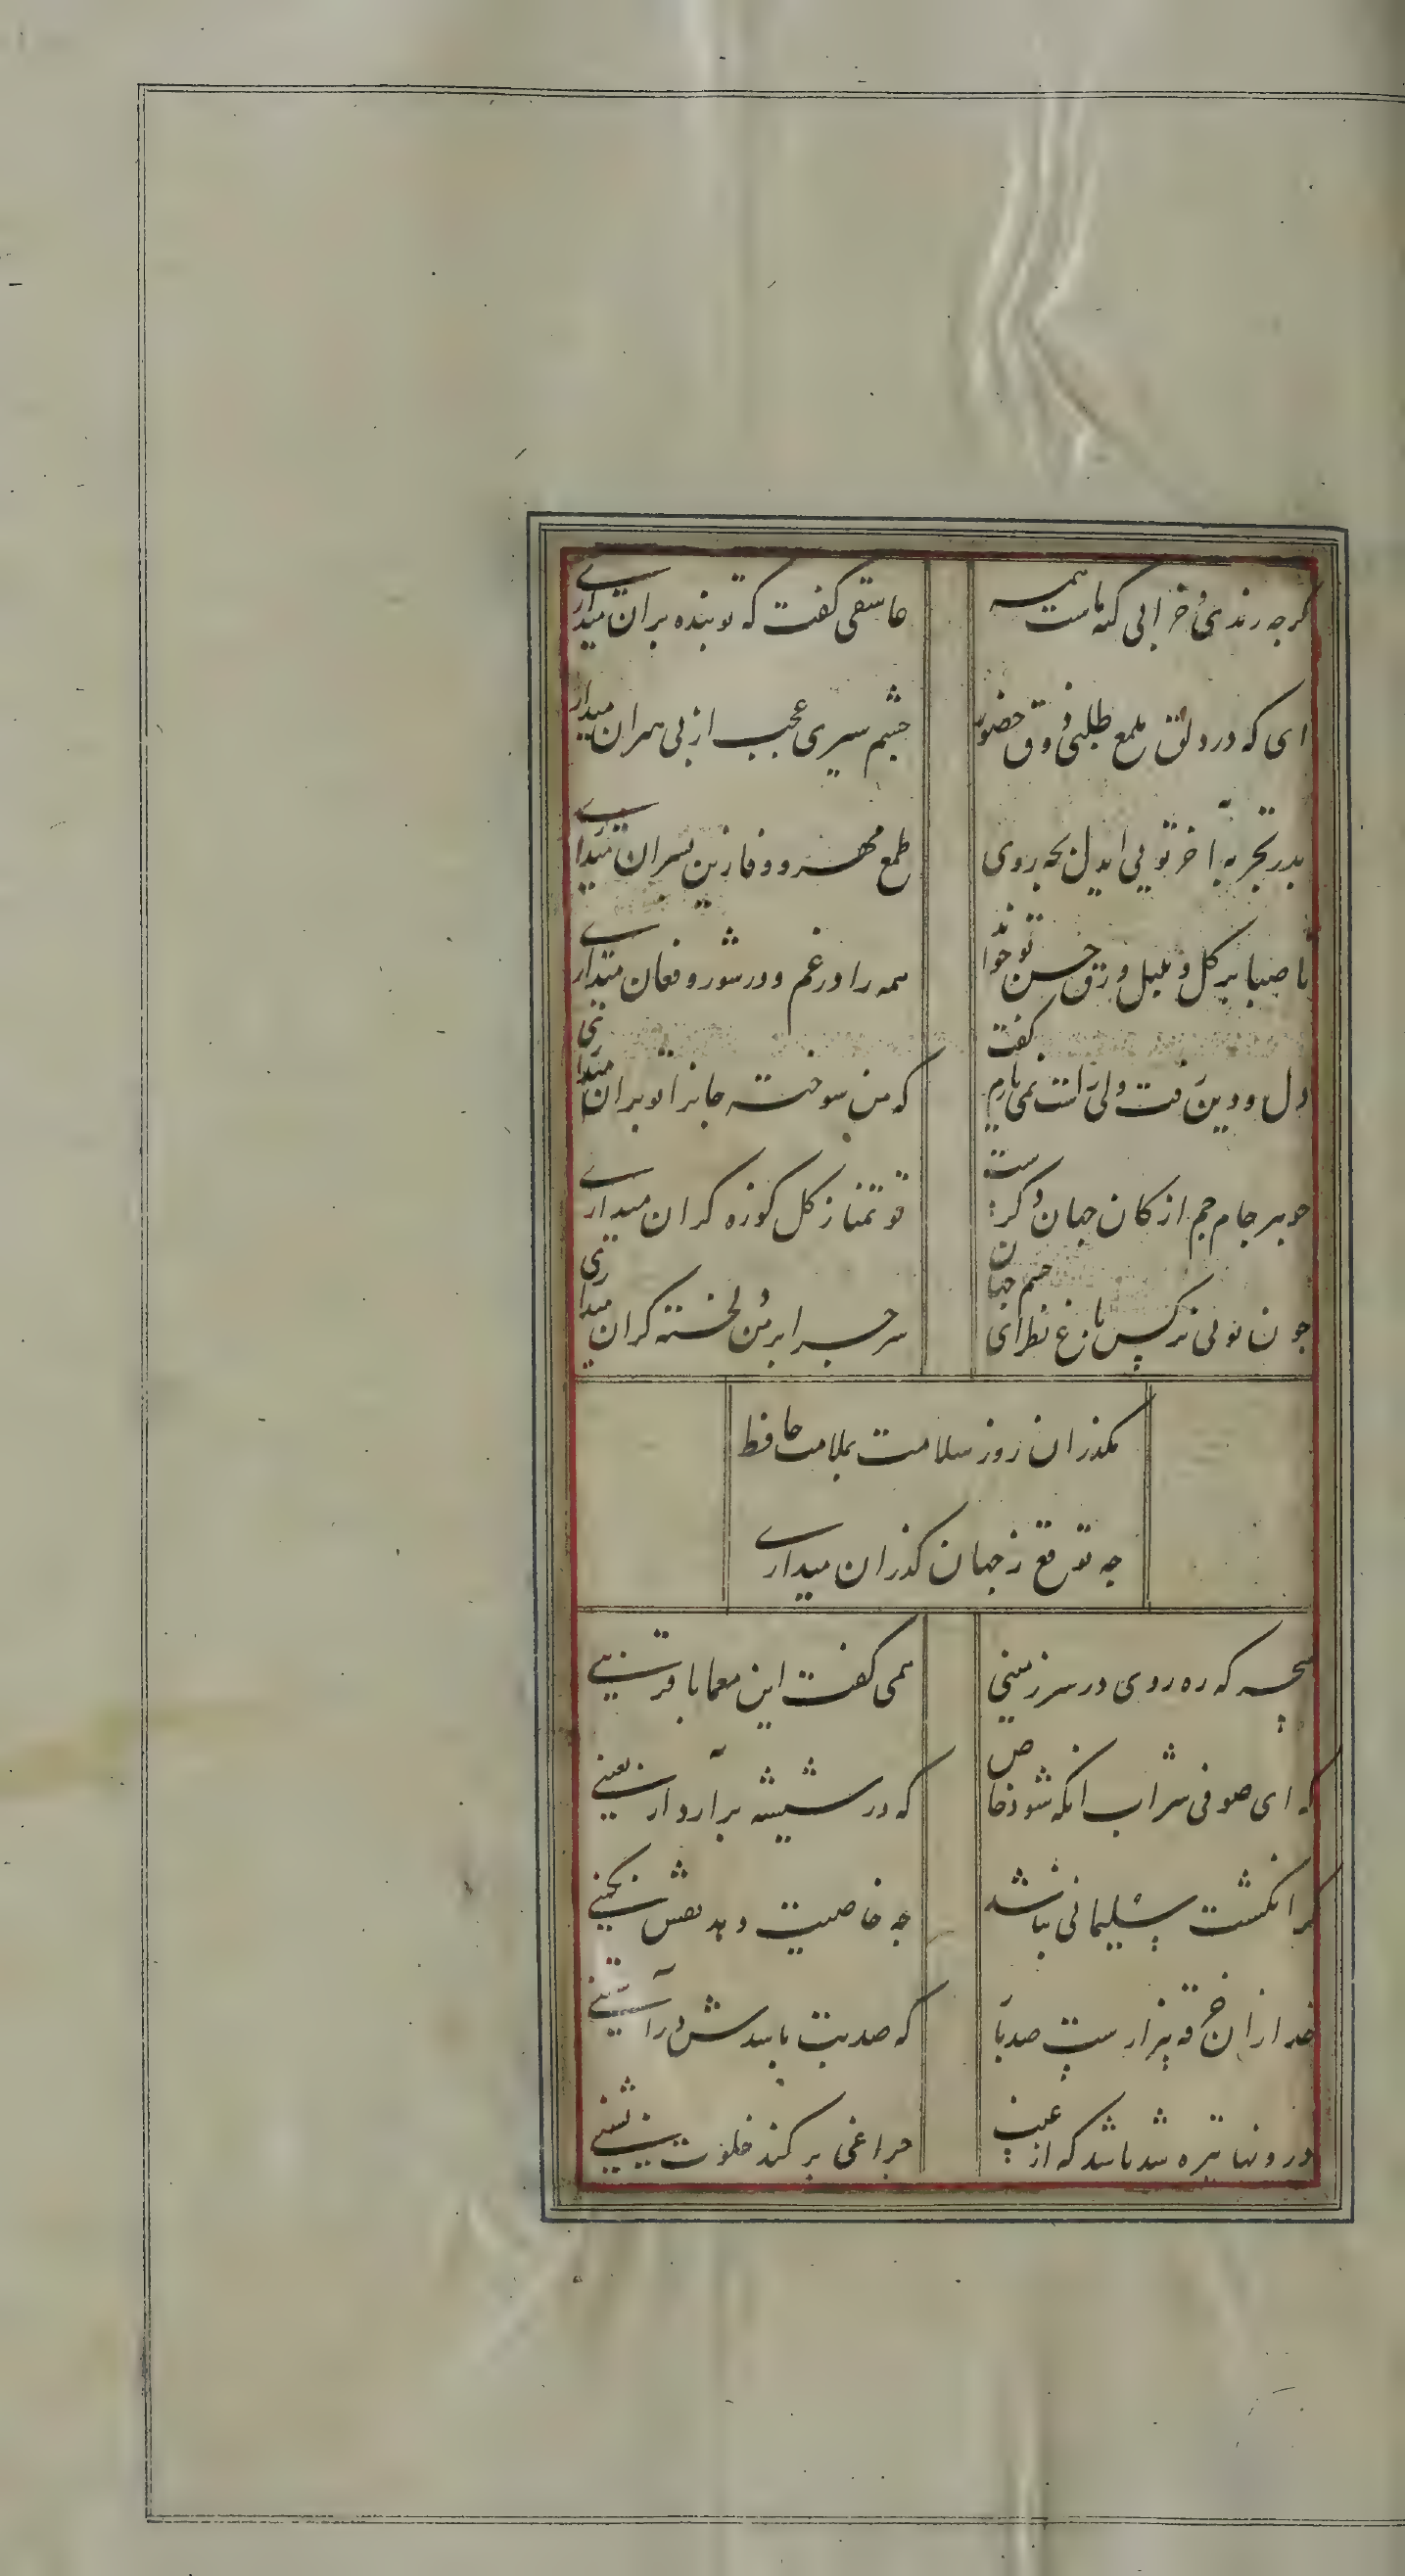 گرچه رندی و خرابی گنه ماست همه
عاشقی گفت که تو بنده بران میداری
ای که در دلق ملمع طلبی ذوق حضور
چشم سیری عجب از بی بصران میداری
پدر تجربه آخر تویی ایدل بچه روی
طمع مهر و وفا زین پسران میداری
تا صبا بر گل و بلبل ورق حسن تو خواند
همه را در غم و در شور و فغان میداری
دل و دین رفت ولی راست نمی یارم گفت
که من سوخته جانرا تو بران میداری
جوهر جام جم از کان جهان دگرست
تو تمنا ز گل کوزه گران میداری
چون تویی نرگس باغ نظر ای چشم جهان
سر چرا بر من دلخسته گران میداری
مگذران روز سلامت بملامت حافظ
چه توقع ز جهان گذران میداری
که رهروی در سرزمینی
همی گفت این معما با قرینی
که ای صوفی شراب انگه شود صاف
که در شیشه بر آرد اربعینی
گر انگشت سلیمانی نباشد
چه خاصیت دهد نقش نگینی
خدا زان خرقه بیزارست صد بار
که صد بت باشدش در آستینی
درونها تیره شد باشد که از غیب
چراغی بر کند خلوت نشینی